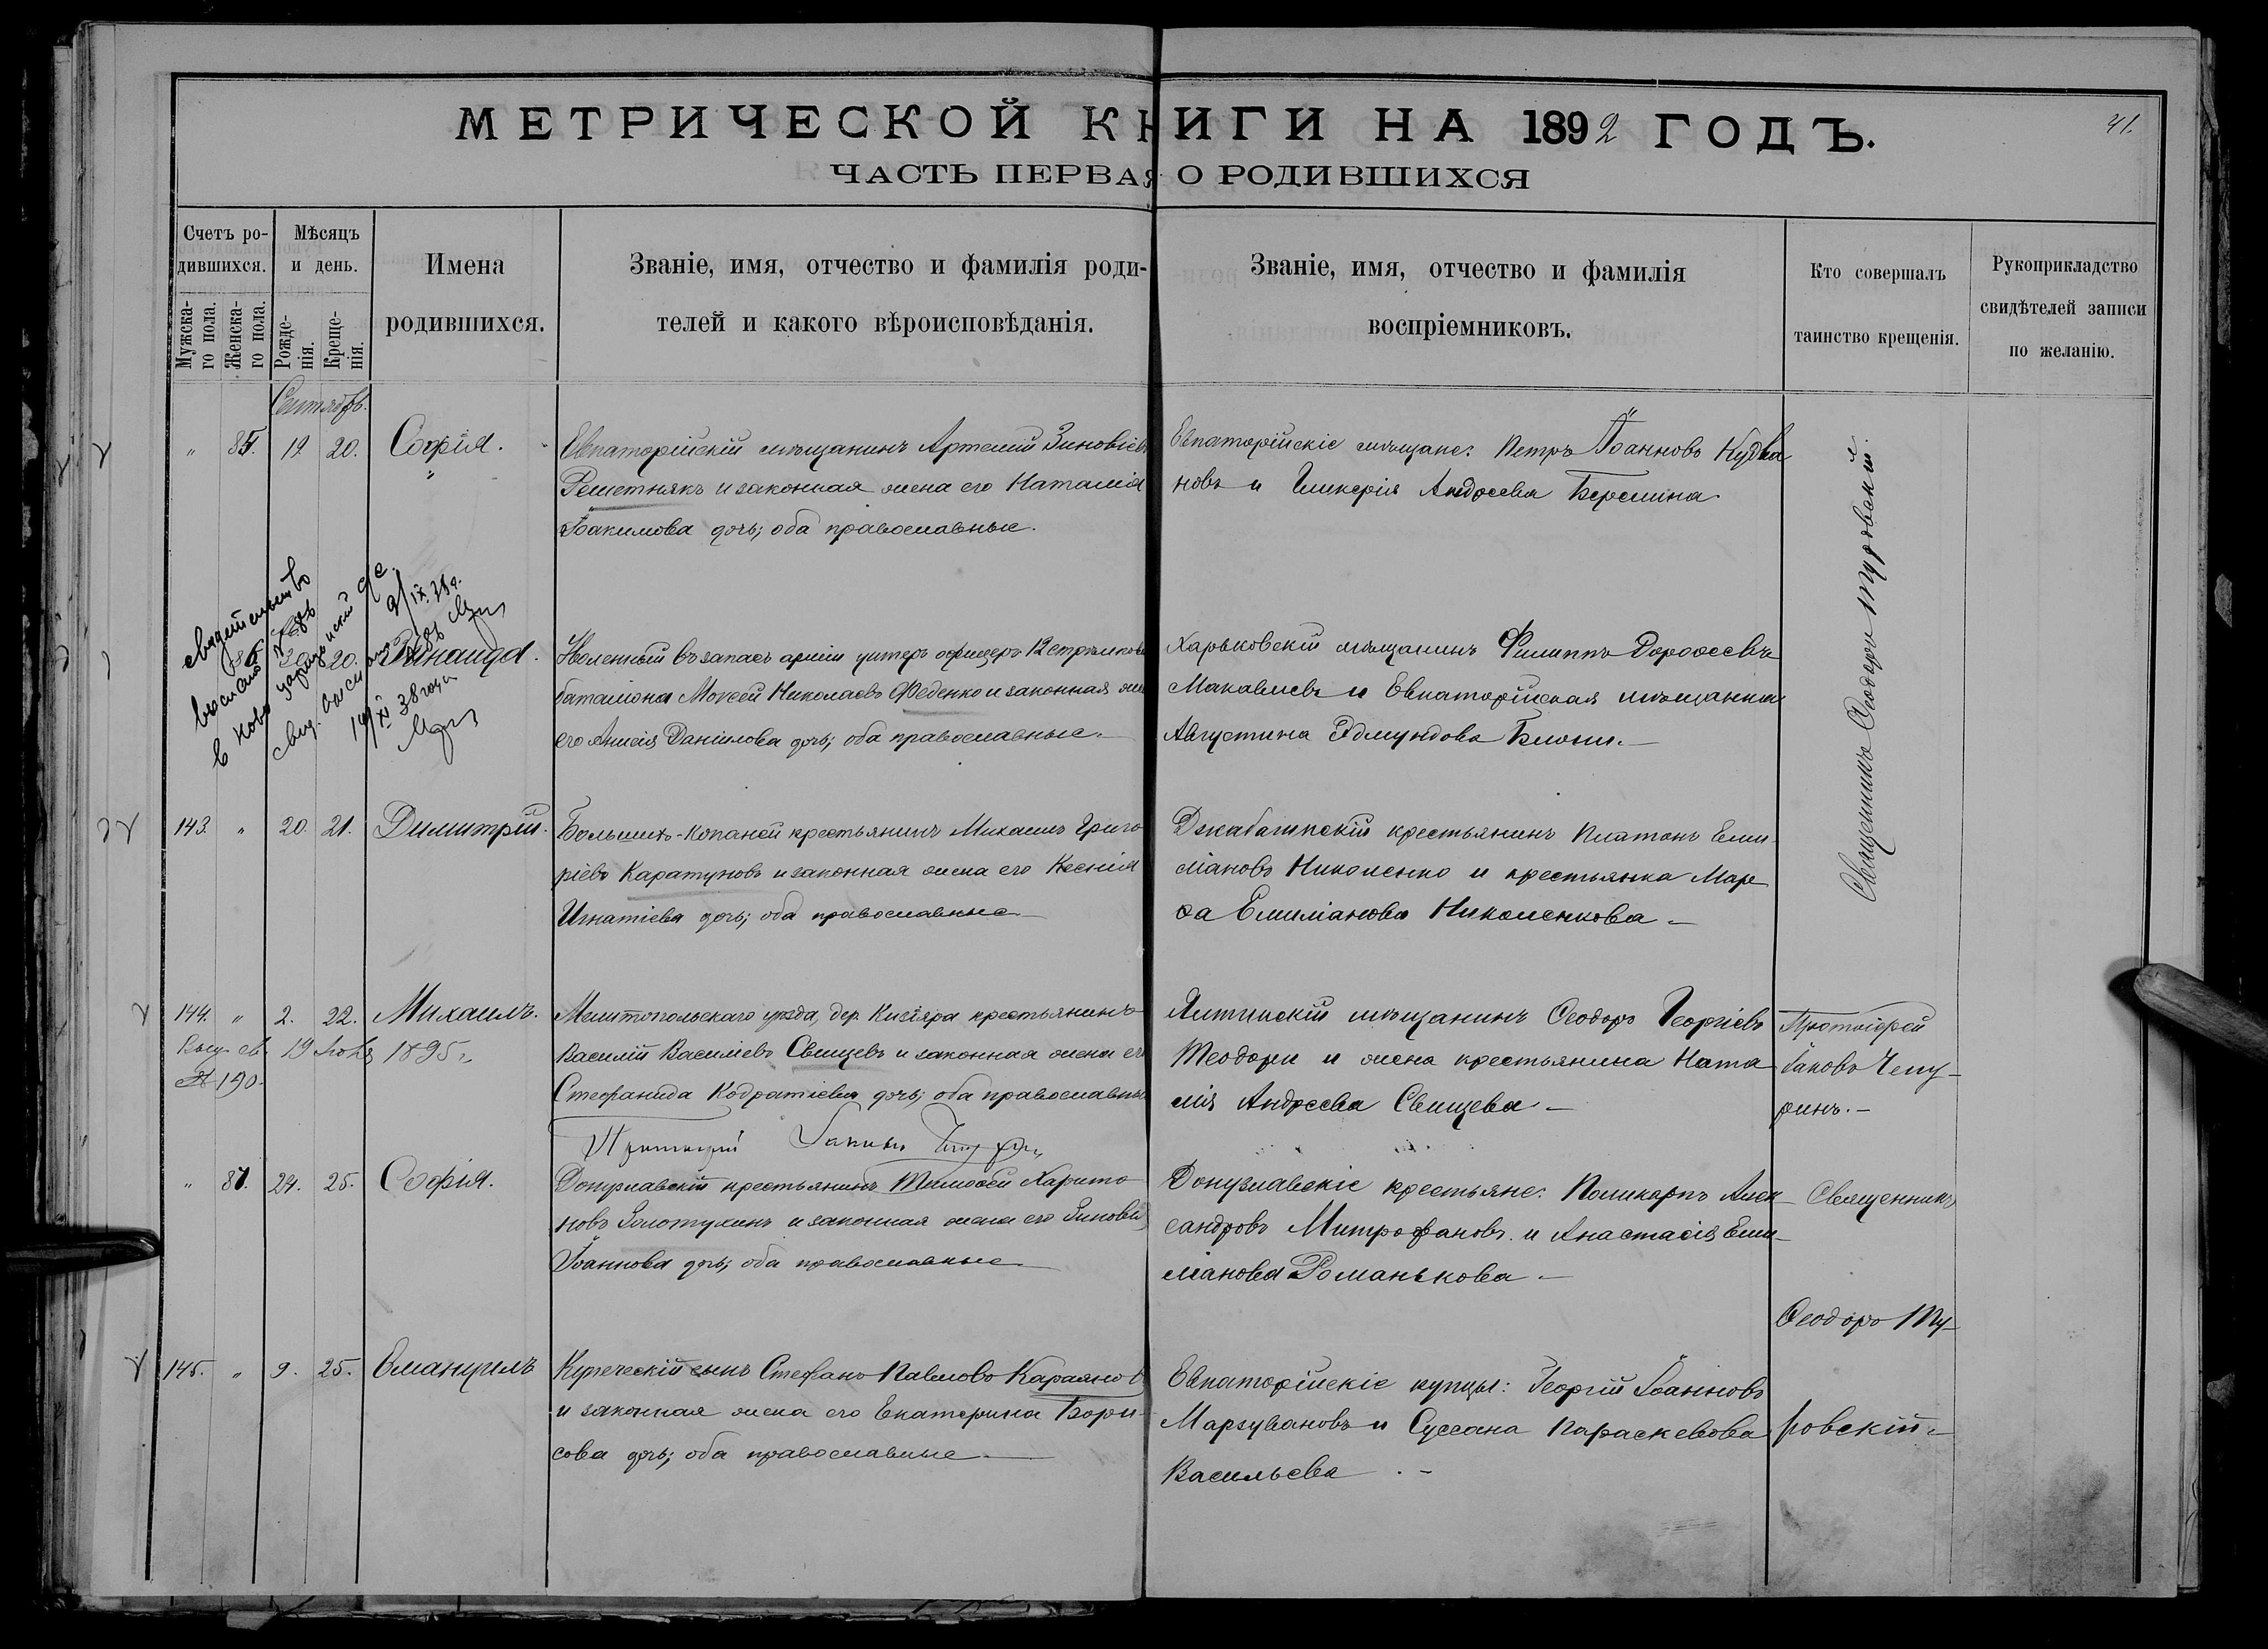 МЕТРИЧЕСКОЙ КНИГИ НА 1892 ГОДЪ.
41.
ЧАСТЬ ПЕРВАЯ О РОДИВШИХСЯ
Счетъ ро-
дившихся.
Мужска-
го пола.
Женска-
го пола.
Мѣсяцъ
и день.
Рожде-
нія.
Креще-
нія.
Имена
родившихся.
Званіе, имя, отчество и фамилія роди-
телей и какого вѣроисповѣданія.
Званіе, имя, отчество и фамилія
воспріемниковъ.
Кто совершалъ
таинство крещенія.
Рукоприкладство
свидѣтелей записи
по желанію.
Сентябрь.
" 85. 12 20. Софія.
Евпаторійскій мѣщанинъ Артемий Зиновіевъ
Решетнякъ и законная жена его Наталія
Іоакимова дочь; оба православные.
Евпаторійскіе мѣщане: Петръ Іоанновъ Кудва
новъ и Гликерія Андреева Беремина.
Священникъ Ѳеодоръ Туровскій.
свидетельство
выслано
в ново царицынский
9/IX.38г.
14/XI 38 года
86 20. Зинаида.
Уволенный въ запасъ арміи унтеръ офицеръ 12 стрѣлковаго
баталіона Моисей Николаевъ Феденко и законная жена
его Анисія Даніилова дочь; оба православные.
Харьковскій мѣщанинъ Филиппъ Дороѳеевъ
Макавиевъ и Евпаторійская мѣщанка
Августина Эдмундова
143. " 20. 21. Димитрій.
Большихъ-Копаней крестьянинъ Михаилъ Григо
ріевъ Каратуновъ и законная жена его Ксенія
Игнатіева дочь; оба православные
Джабачинскій крестьянинъ Платонъ Еми
ліановъ Николенко и крестьянка Мар
ѳа Емиліанова Николенкова
144. " 2. 22. Михаилъ.
19 1895 г.
№ 190.
Мелитопольскаго уѣзда, дер. Кизіяра крестьянинъ
Василій Василіевъ Свищевъ и законная жена его
Стефанида Кодратіева дочь; оба православные
Протоіерей Іаковъ Чепуринъ
Ялтинскій мѣщанинъ Ѳеодоръ Георгіевъ
Теодори и жена крестьянина Ната
лія Андреева Свищева
Протоіерей
Іаковъ Чепу-
ринъ.
" 87. 24. 25. Софія.
Донузлавскій крестьянинъ Тимоѳей Харито
новъ Золотухинъ и законная жена его Зиновія
Іоаннова дочь; оба православные
Донузлавскіе крестьяне: Поликарпъ Алек
сандровъ Митрофановъ и Анастасія Еми-
ліанова Романькова
Священникъ
Ѳеодоръ Ту-
ровскій
145. " 9. 25. Емануилъ
Купеческій сынъ Стефанъ Павловъ Караяновъ
и законная жена его Екатерина Бори-
сова дочь; оба православные
Евпаторійскіе купцы: Георгій Іоанновъ
Маргувановъ и Сусанна Параскевова
Васильева